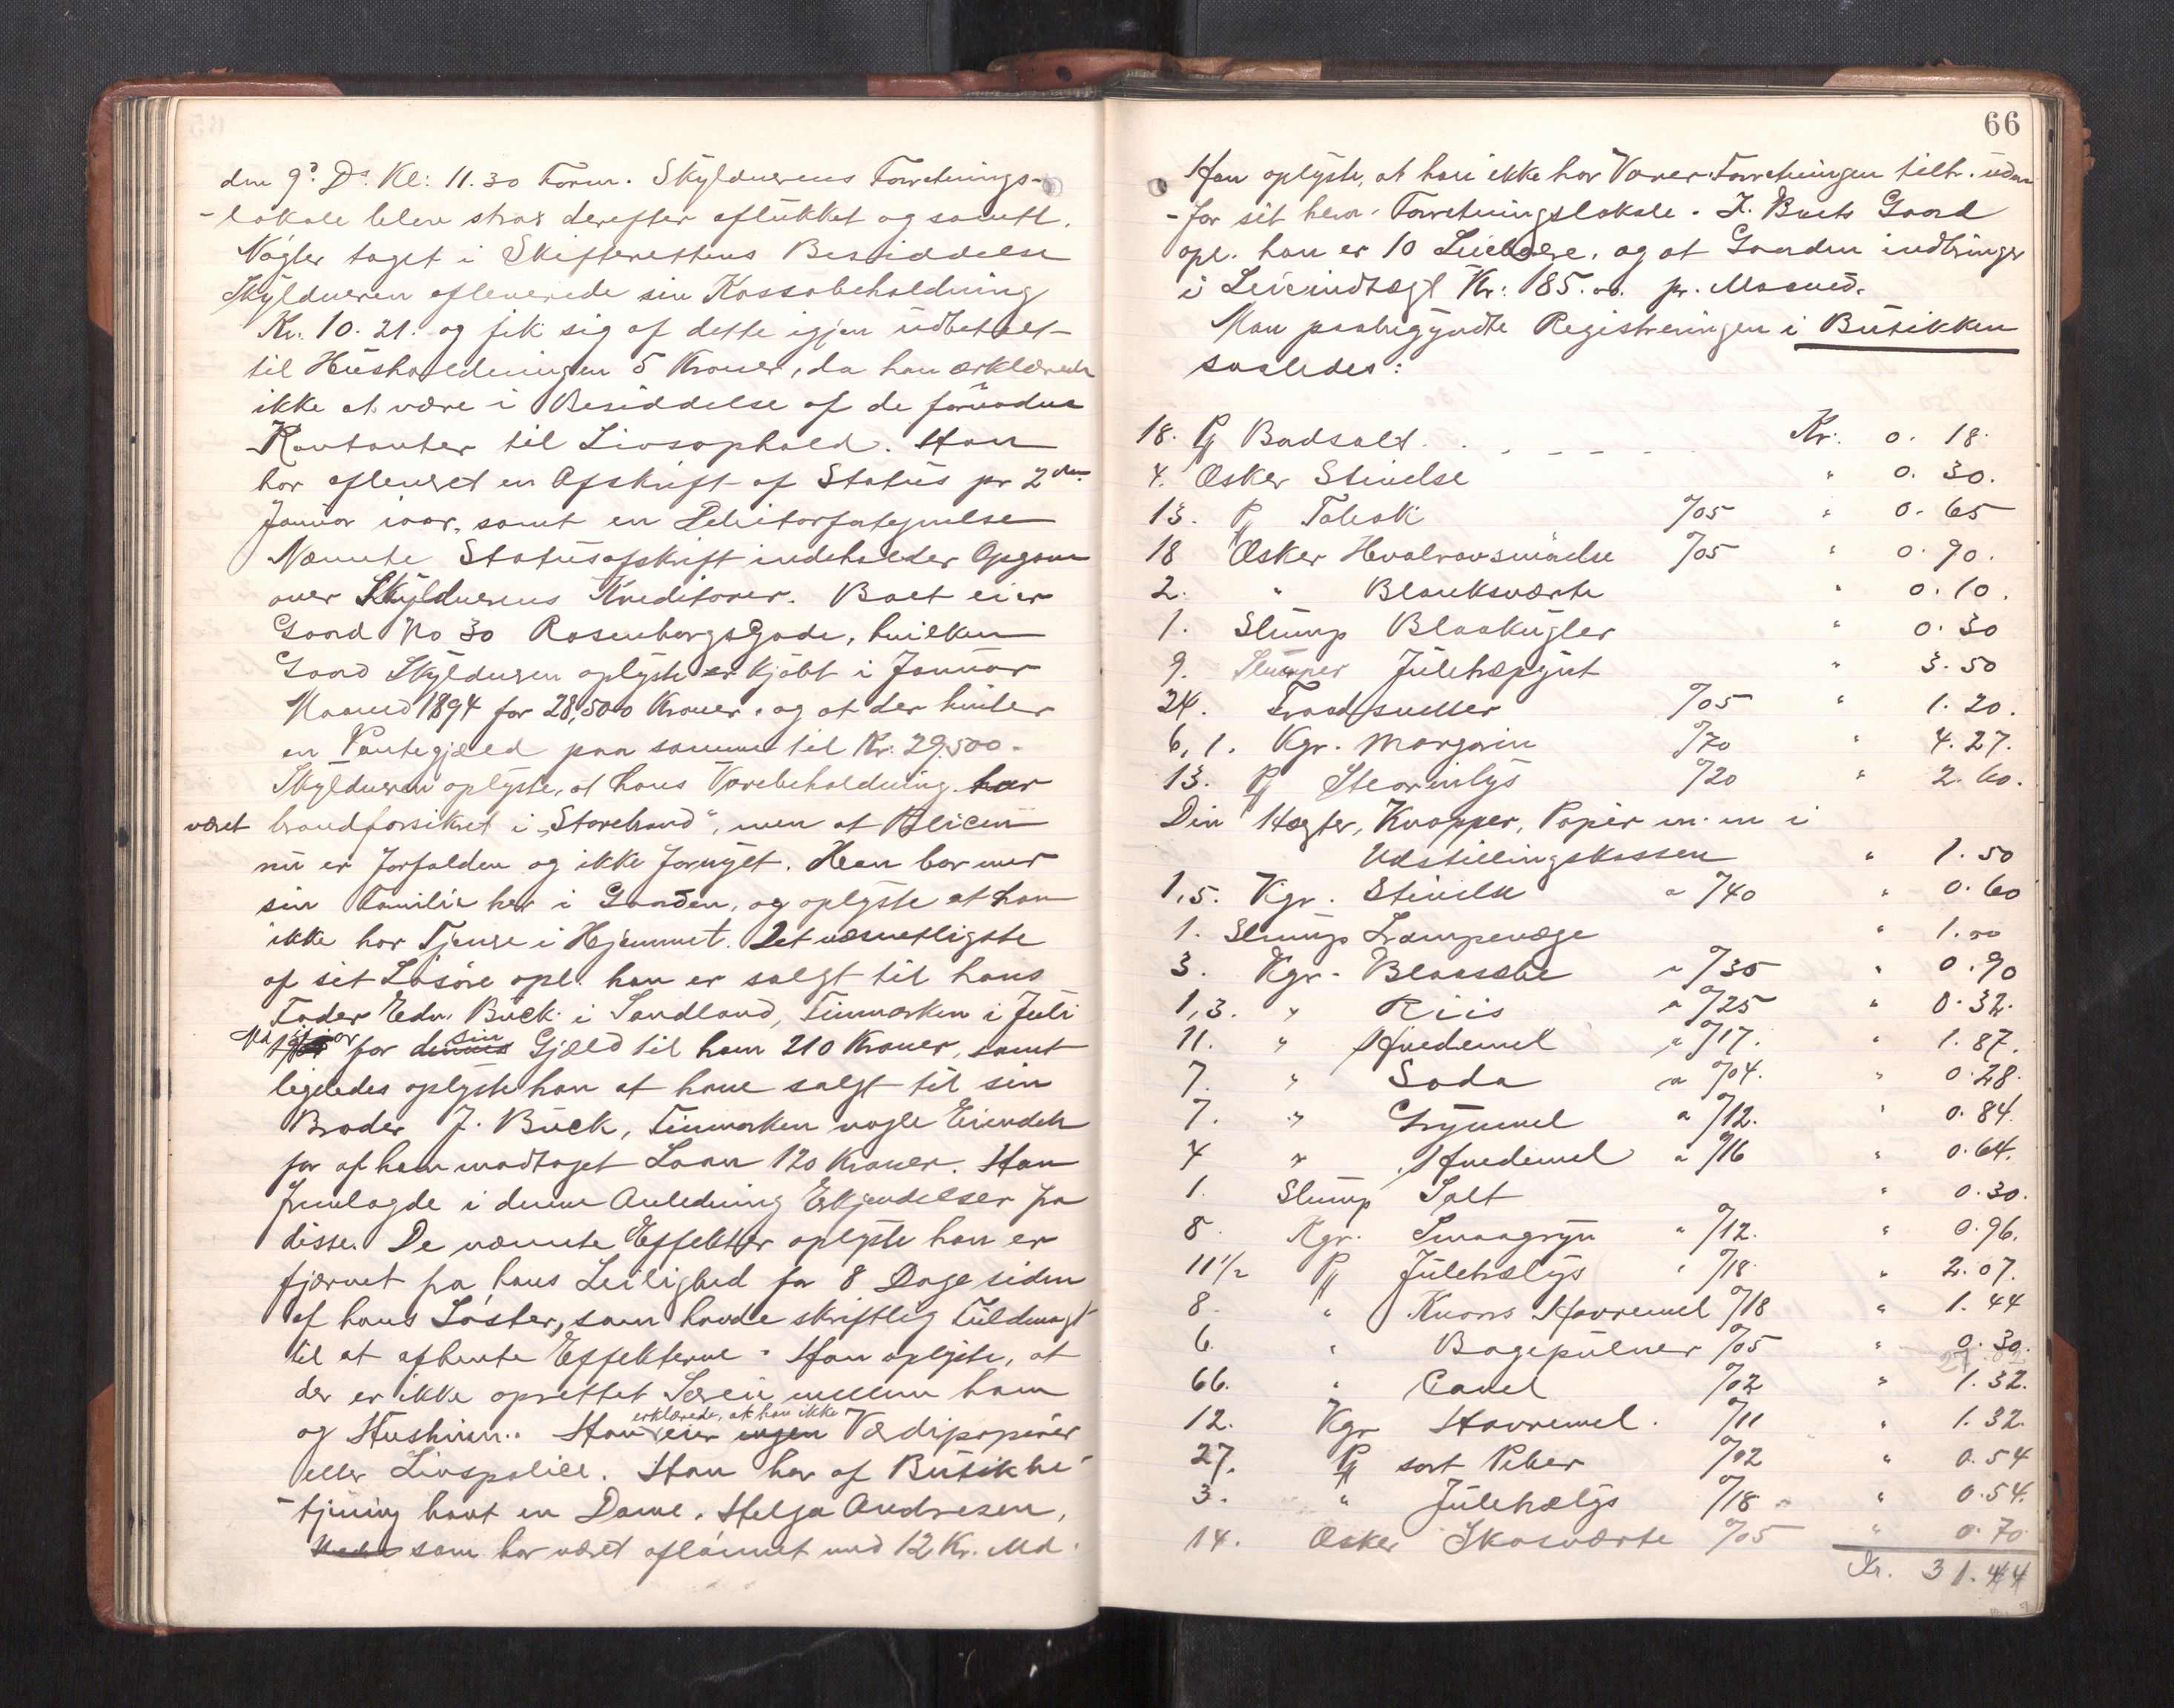 den 9? Ds. Kl: 11.30 Form. Skyldnerens Forretnings-
-lokale bleve strax derefter aflukket og samtl.
Nøgler taget i Skifterettens Besiddelse
Skyldneren afleverede sin Kassabeholdning
Kr. 10.21. og fik sig af dette igjen udbetalt
til Husholdningen 5 Kroner, da han erklærede
ikke at være i Besiddelse af de fornødne
Kontanter til Livsophold. Han
har afleveret en Afskrift af Status pr 2den
Januar iaar, samt en Debitorfortegnelse
Nævnte Statusafskrift indeholder Opgave
over Skyldnerens Kreditorer. Boet eier
Gaard No 30 Rosenborgsgade, hvilken
Gaard Skyldneren oplyste er kjøbt i Januar
Maaned 1894 for 28,500 Kroner. og at der hviler
en Pantegjæld paa samme til Kr. 29.500.
Skyldneren oplyste, at hans Varebeholdning har
været brandforsikret i „Storebrand“, men at Policen
nu er forfalden og ikke fornyet. Han bor med
sin Familie her i Gaarden, og oplyste at han
ikke har Tjener i Hjemmet. Det væsentligste
af sit Løsøre opl. han er solgt til hans
Fader Edv. Buck i Sandland, Finmarken i Juli
Md. iaar for sin Gjæld til ham 210 Kroner, samt
ligeledes oplyste han at have solgt til sin
Broder J. Buck, Finmarken nogle Eiendele
for af ham modtaget Laan 120 Kroner. Han
fremlagde i denne Anledning Erkjendelser fra
disse. De nævnte Effekter oplyste han er
fjernet fra hans Leilighed for 8 Dage siden
af hans Søster, som havde skriftlig Fuldmagt
til at afhente Effekterne. Han oplyste, at
der er ikke oprettet Særeie mellem ham
og Hustruen. Han erklærede, at han ikke eier ingen Værdipapirer
eller Livspolice. Han har af Butikbe-
-tjening havt en Dame, Helga Andresen,
som har været aflønnet med 12 Kr. Md.
66
Han oplyste, at han ikke har Varer Forretningen tilh. uden-
-for sit herv. Forretningslokale. I Boets Gaard
opl. han er 10 Leieboere, og at Gaarden indbringer
i Leieindtægt Kr: 185.00. pr. Maaned.
Man paabegyndte Registreringen i Butikken
saaledes:
18. Pk Badsalt . . - - - - Kr. 0. 18.
4. Æsker Stivelse " 0. 30.
13. Pk Tobak %05 " 0. 65
18 Æsker Hvalravsmørelse %05 " 0. 90.
2. " Blanksværte " 0. 10.
1. Slump Blaakugler " 0. 30
9. Slumper Juletræpynt " 3. 50
24. Traadsneller %05 " 1. 20.
6,1. Kgr. Margarin %70 " 4. 27.
13. Pk Stearinlys %20 " 2. 60.
Div Hægter, Knapper, Papir m. m i
Udstillingskassen " 1. 50
1,5. Kgr. Stivelse a %40 " 0. 60
1. Slump Lampevæge " 1. 00
3. Kgr. Blaasæbe a %30 " 0. 90
1,3. " Riis a %25 " 0. 32.
11. " Hvedemel a %17. " 1. 87.
7. " Soda a %04. " 0. 28.
7. " Grynmel a %12. " 0. 84.
4 " Hvedemel a %16 " 0. 64.
1. Slump Salt " 0. 30.
8 Kgr. Smaagryn " %12. " 0. 96.
11½ Pk Juletrælys " %18. " 2. 07.
8. " Knorrs Havremel %18 " 1. 44
6. " Bagepulver %05 " 0. 30.
66. " Canel %02 " 1. 32.
12. Kgr Havremel. %11 " 1. 32.
27. Pk sort Peber %02 " 0. 54
3. " Juletrælys %18 " 0. 54.
14. Æsker Skosværte %05 " 0. 70
Kr. 31.44